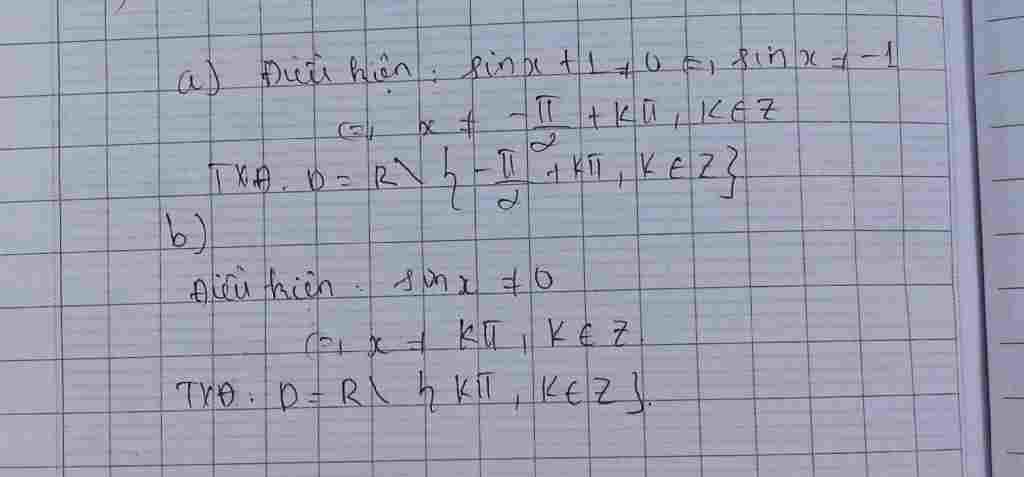 a) Điều kiện: sinx + 1 ≠ 0 <=> sinx ≠ -1
<=> x ≠ -π/2 + Kπ, K ∈ Z
TXĐ. D = R \ { -π/2 + Kπ, K ∈ Z }
b)
Điều kiện. sinx ≠ 0
<=> x ≠ Kπ, K ∈ Z
TXĐ: D = R \ { Kπ, K ∈ Z }.